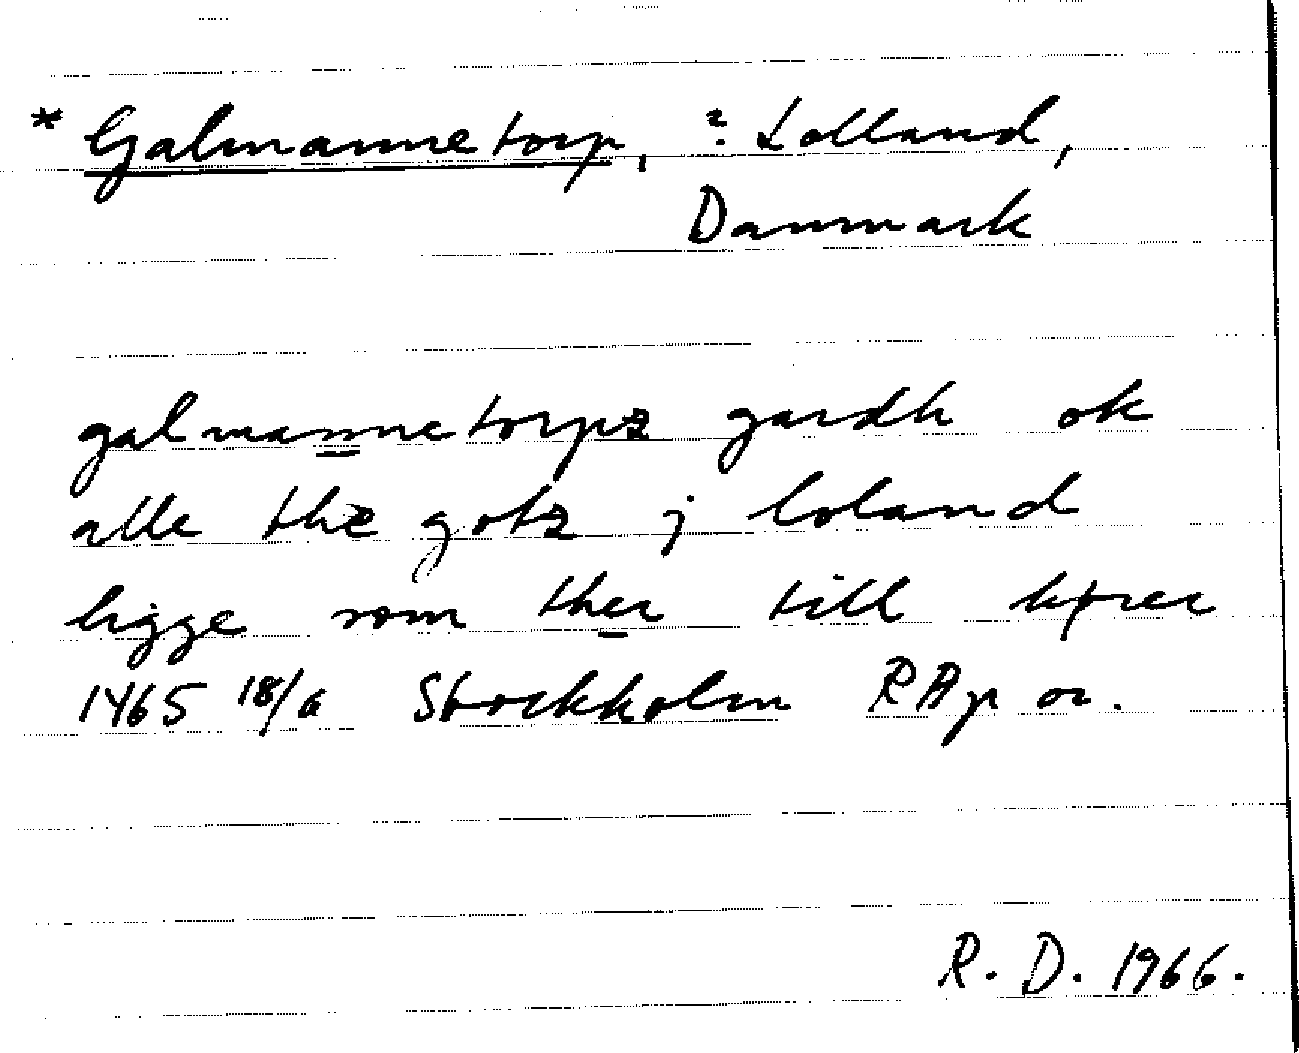 * Galmannetorp, ? Lolland,
Danmark
galmannetorpz gardh ok
alle the gotz j loland
ligge som ther till hører
1465 18/6 Stockholm RAp or.
R. D. 1966.